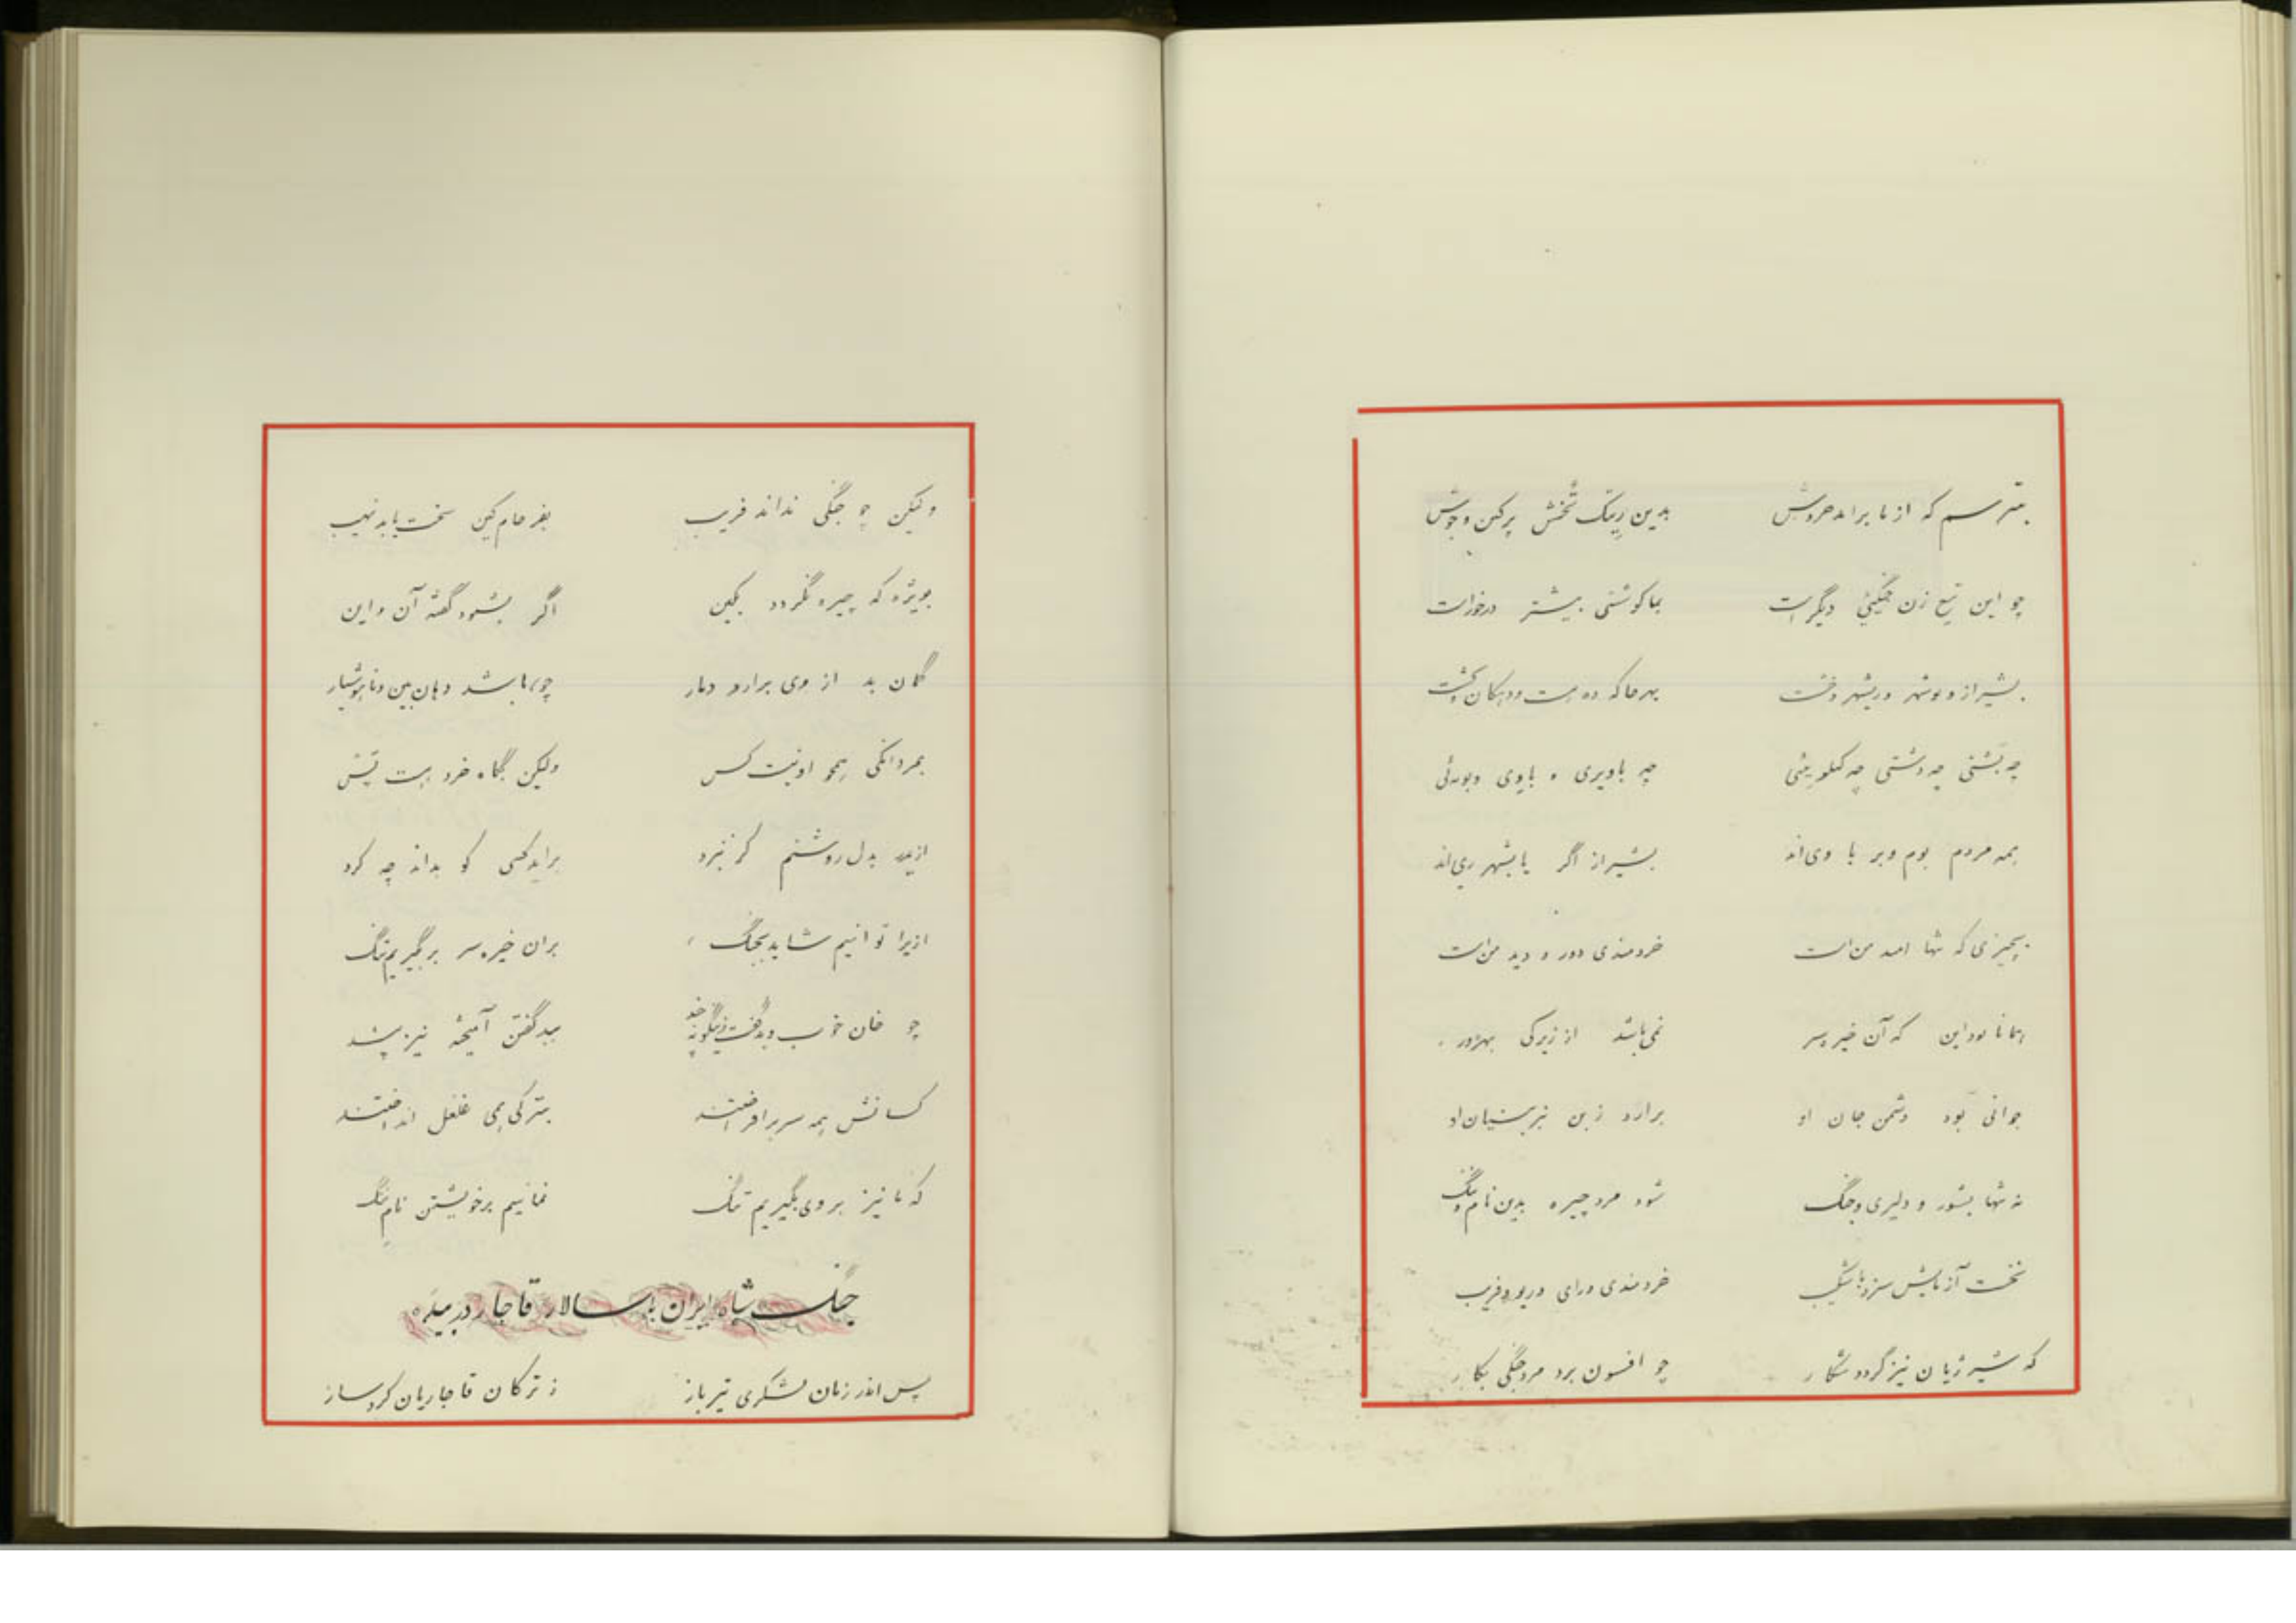 بترسم که از ما براید خروش بدین ریتک تخش پرکین و جوش
چو این تیغ زن جنگیئی دیگر است بما کوششی بیشتر درخور است
بشیراز و بوشهر و ریشهر و دشت بهر جا که ده هست و دهکان و کشت
چه پشتی چه دشتی چه چه باویری و باوی و
همه مردم بوم و بر با وی اند بشیراز اگر یا بشهر ری اند
بچیزی که تنها امید من است خردمندی دور و دید من است
همانا بود این که آن خیره سر نمی باشد از زیرکی بهره ور
جوانی بود دشمن جان او برارد ز بن نیز بنیان او
نه تنها بشور و دلیری و جنگ شود مرد چیره بدین نام و ننگ
نخست آزمایش سزد با شکیب خردمندی و رای و ریو و فریب
که شیر ژیان نیز گردد شکار چو افسون برد مرد جنگی بکار
ولیکن چو جنگی نداند فریب بفرجام کین سخت یابد نهیب
بویژه که چیره نگردد بکین اگر بشنود گفته آن و این
گمان بد از وی برارد دمار چو برنا باشد دهان بین و ناهوشیار
بمردانگی همچو او نیست کس ولیکن بگاه خرد هست پس
ازین بدل روشنم کز نبرد براید کسی کو بداند چه کرد
ازیرا توانیم شاید بجنگ بران خیره سر بر بگیریم تنگ
چو خان خوب و بد گفت زینگونه چند ببد گفتن آمیخته نیز پند
کسانش همه سر برافراختند بترکی همی غلغل انداختند
که ما نیز بر وی بگیریم تنگ نمانیم بر خویشتن نام ننگ
جنگ شاه ایران با سالار قاجار در میله
پس اندر زمان لشکری تیرباز ز ترکان قاجاریان کرد ساز